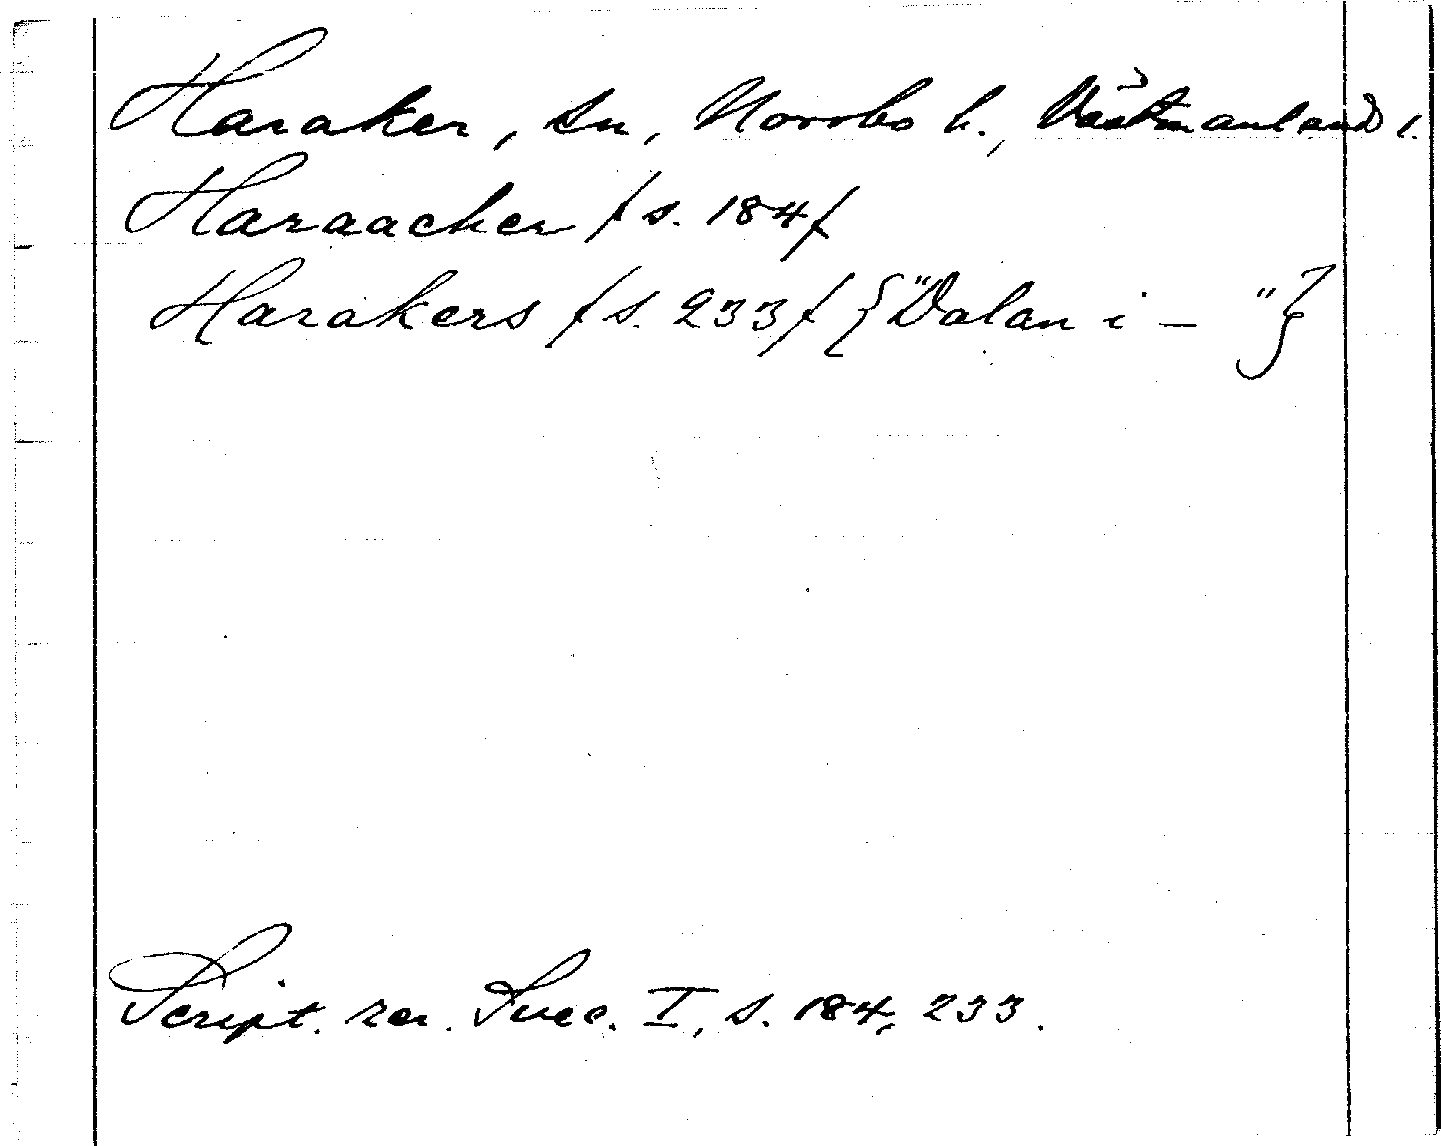 Haraker, sn, Norrbo h., Västmanland l.
Haraacker /s. 184/
Harakers /s. 233/ {"Dalan i — "}
Script. rer. Suec. I, s. 184, 233.